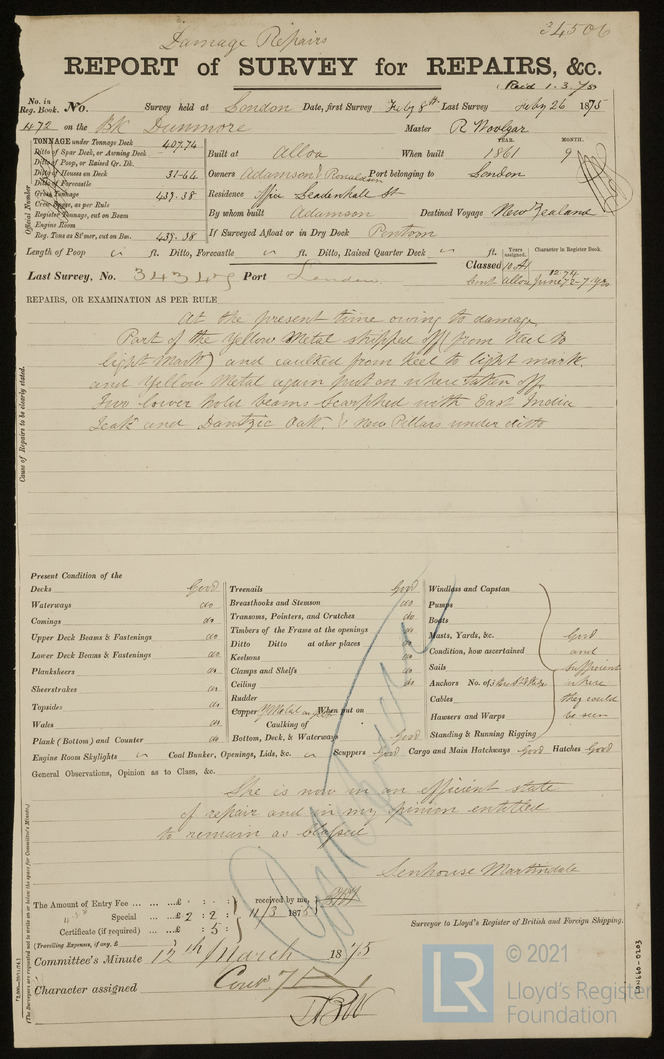 34506
Damage Repairs
REPORT of SURVEY for REPAIRS, &c.
Paid 1.3./75
No. in Reg. Book. No. Survey held at London Date, first Survey Feby 8th Last Survey Feby 26 1875
472 on the Bk Dunmore Master R Woolgar
TONNAGE under Tonnage Deck 407.74
Ditto of Spar Deck, or Awning Deck
Ditto of Poop, or Raised Qr. Dk.
Ditto of Houses on Deck 31.64
Ditto of Forecastle
Gross Tonnage 439.38
Crew Space, as per Rule
Register Tonnage, cut on Beam
Engine Room
Reg. Tons as St'mer, cut on Bm. 439.38
Official Number
Built at Alloa When built YEAR. 1861 MONTH. 9
Owners Adamson & Ronaldson Port belonging to London
Residence Leadenhall St
By whom built Adamson Destined Voyage New Zealand
If Surveyed Afloat or in Dry Dock Pontoon
Length of Poop ft. Ditto, Forecastle ft. Ditto, Raised Quarter Deck ft. Years assigned. Character in Register Book.
Last Survey, No. 34345 Port London Classed 10 A1
REPAIRS, OR EXAMINATION AS PER RULE
At the present time owing to damage
Part of the Yellow Metal stripped off (from keel to
light mark) and caulked from keel to light mark.
and Yellow Metal again put on where taken off.
Two lower hold beams scarphed with East India
Teak and Dantzic Oak, & New Pillars under ditto
Cause of Repairs to be clearly stated.
Present Condition of the
Decks Good
Waterways do
Comings do
Upper Deck Beams & Fastenings do
Lower Deck Beams & Fastenings do
Planksheers do
Sheerstrakes do
Topsides do
Wales do
Plank (Bottom) and Counter do
Treenails Good
Breasthooks and Stemson do
Transoms, Pointers, and Crutches do
Timbers of the Frame at the openings do
Ditto Ditto at other places do
Keelsons do
Clamps and Shelfs do
Ceiling do
Rudder
Copper Y Metal When put on
Caulking of
Bottom, Deck, & Waterways Good
Windlass and Capstan
Pumps
Boats
Masts, Yards, &c.
Condition, how ascertained
Sails
Anchors No. of
Cables
Hawsers and Warps
Standing & Running Rigging
Good
and
sufficient
where
they could
be seen
Engine Room Skylights Coal Bunker, Openings, Lids, &c. Scuppers Good Cargo and Main Hatchways Good Hatches Good
General Observations, Opinion as to Class, &c.
She is now in an efficient state
of repair and in my opinion entitled
to remain as classed
Senhouse Martindale
Surveyor to Lloyd's Register of British and Foreign Shipping.
The Amount of Entry Fee ... ... ...£ : :
Special ... ...£ 2 : 2 :
Certificate (if required) ... : 5 :
(Travelling Expenses, if any, £ )
received by me,
11/3 1875
Committee's Minute 12th March 1875
Character assigned
(The Surveyors are requested not to write on or below the space for Committee's Minute.)
LR
© 2021
Lloyd's Register
Foundation